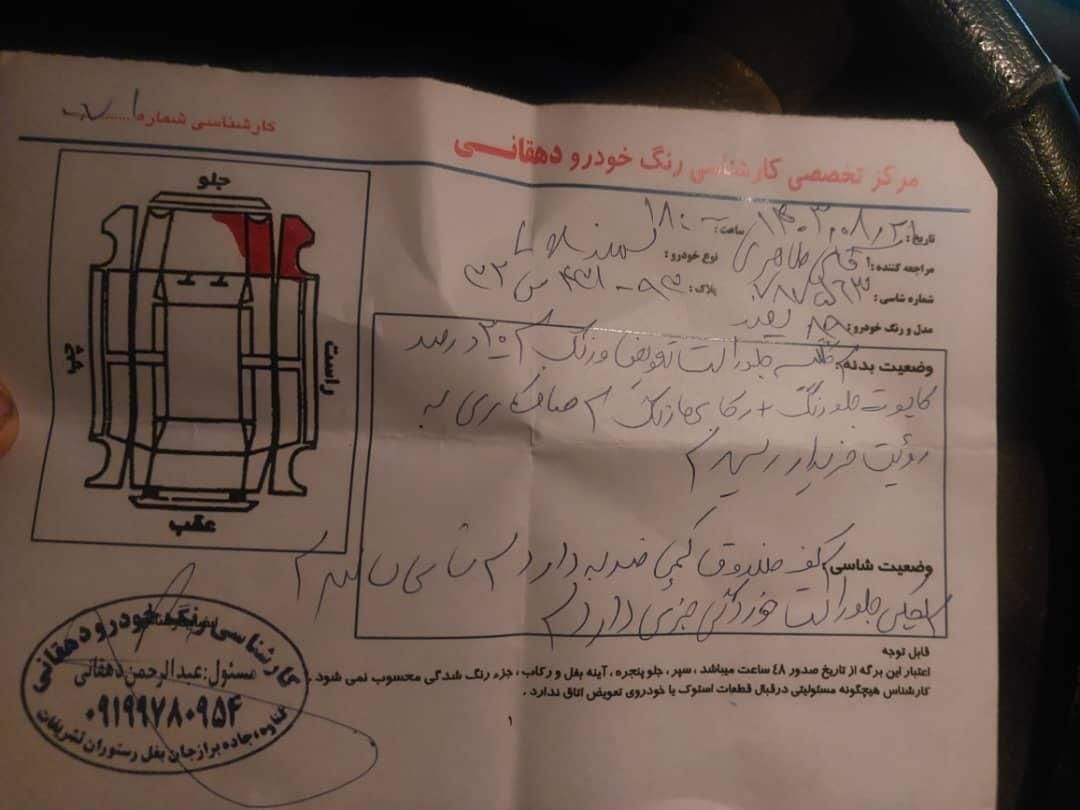 کارشناسی شماره
مرکز تخصصی کارشناسی رنگ خودرو دهقانی
تاریخ: ۱۴۰۳،۰۸،۲۱ ساعت: ۱۸:۰۰
مراجعه کننده: آقای طاهری نوع خودرو: سمند
شماره شاسی: پلاک: ۹۳ -
مدل و رنگ خودرو: سفید
وضعیت بدنه: گلگیر جلو راست تعویض و رنگ ۲۰ درصد
کاپوت جلو رنگ + رکابها رنگ صافکاری به
رؤیت خریدار رسید
وضعیت شاسی: کف صندوق کمی ضربه دارد شاسی سالم
سینی جلو راست خوردگی جزئی دارد
جلو
چپ
راست
عقب
قابل توجه
اعتبار این برگه از تاریخ صدور ٤٨ ساعت میباشد ، سپر ، جلو پنجره ، آینه بغل و رکاب ، جزء رنگ شدگی محسوب نمی شود .
کارشناس هیچگونه مسئولیتی درقبال قطعات استوک یا خودروی تعویض اتاق ندارد .
۱
کارشناسی رنگ خودرو دهقانی
مسئول: عبدالرحمن دهقانی
۰۹۱۹۹۷۸۰۹۵۴
گناوه، جاده برازجان بغل رستوران تشریفات